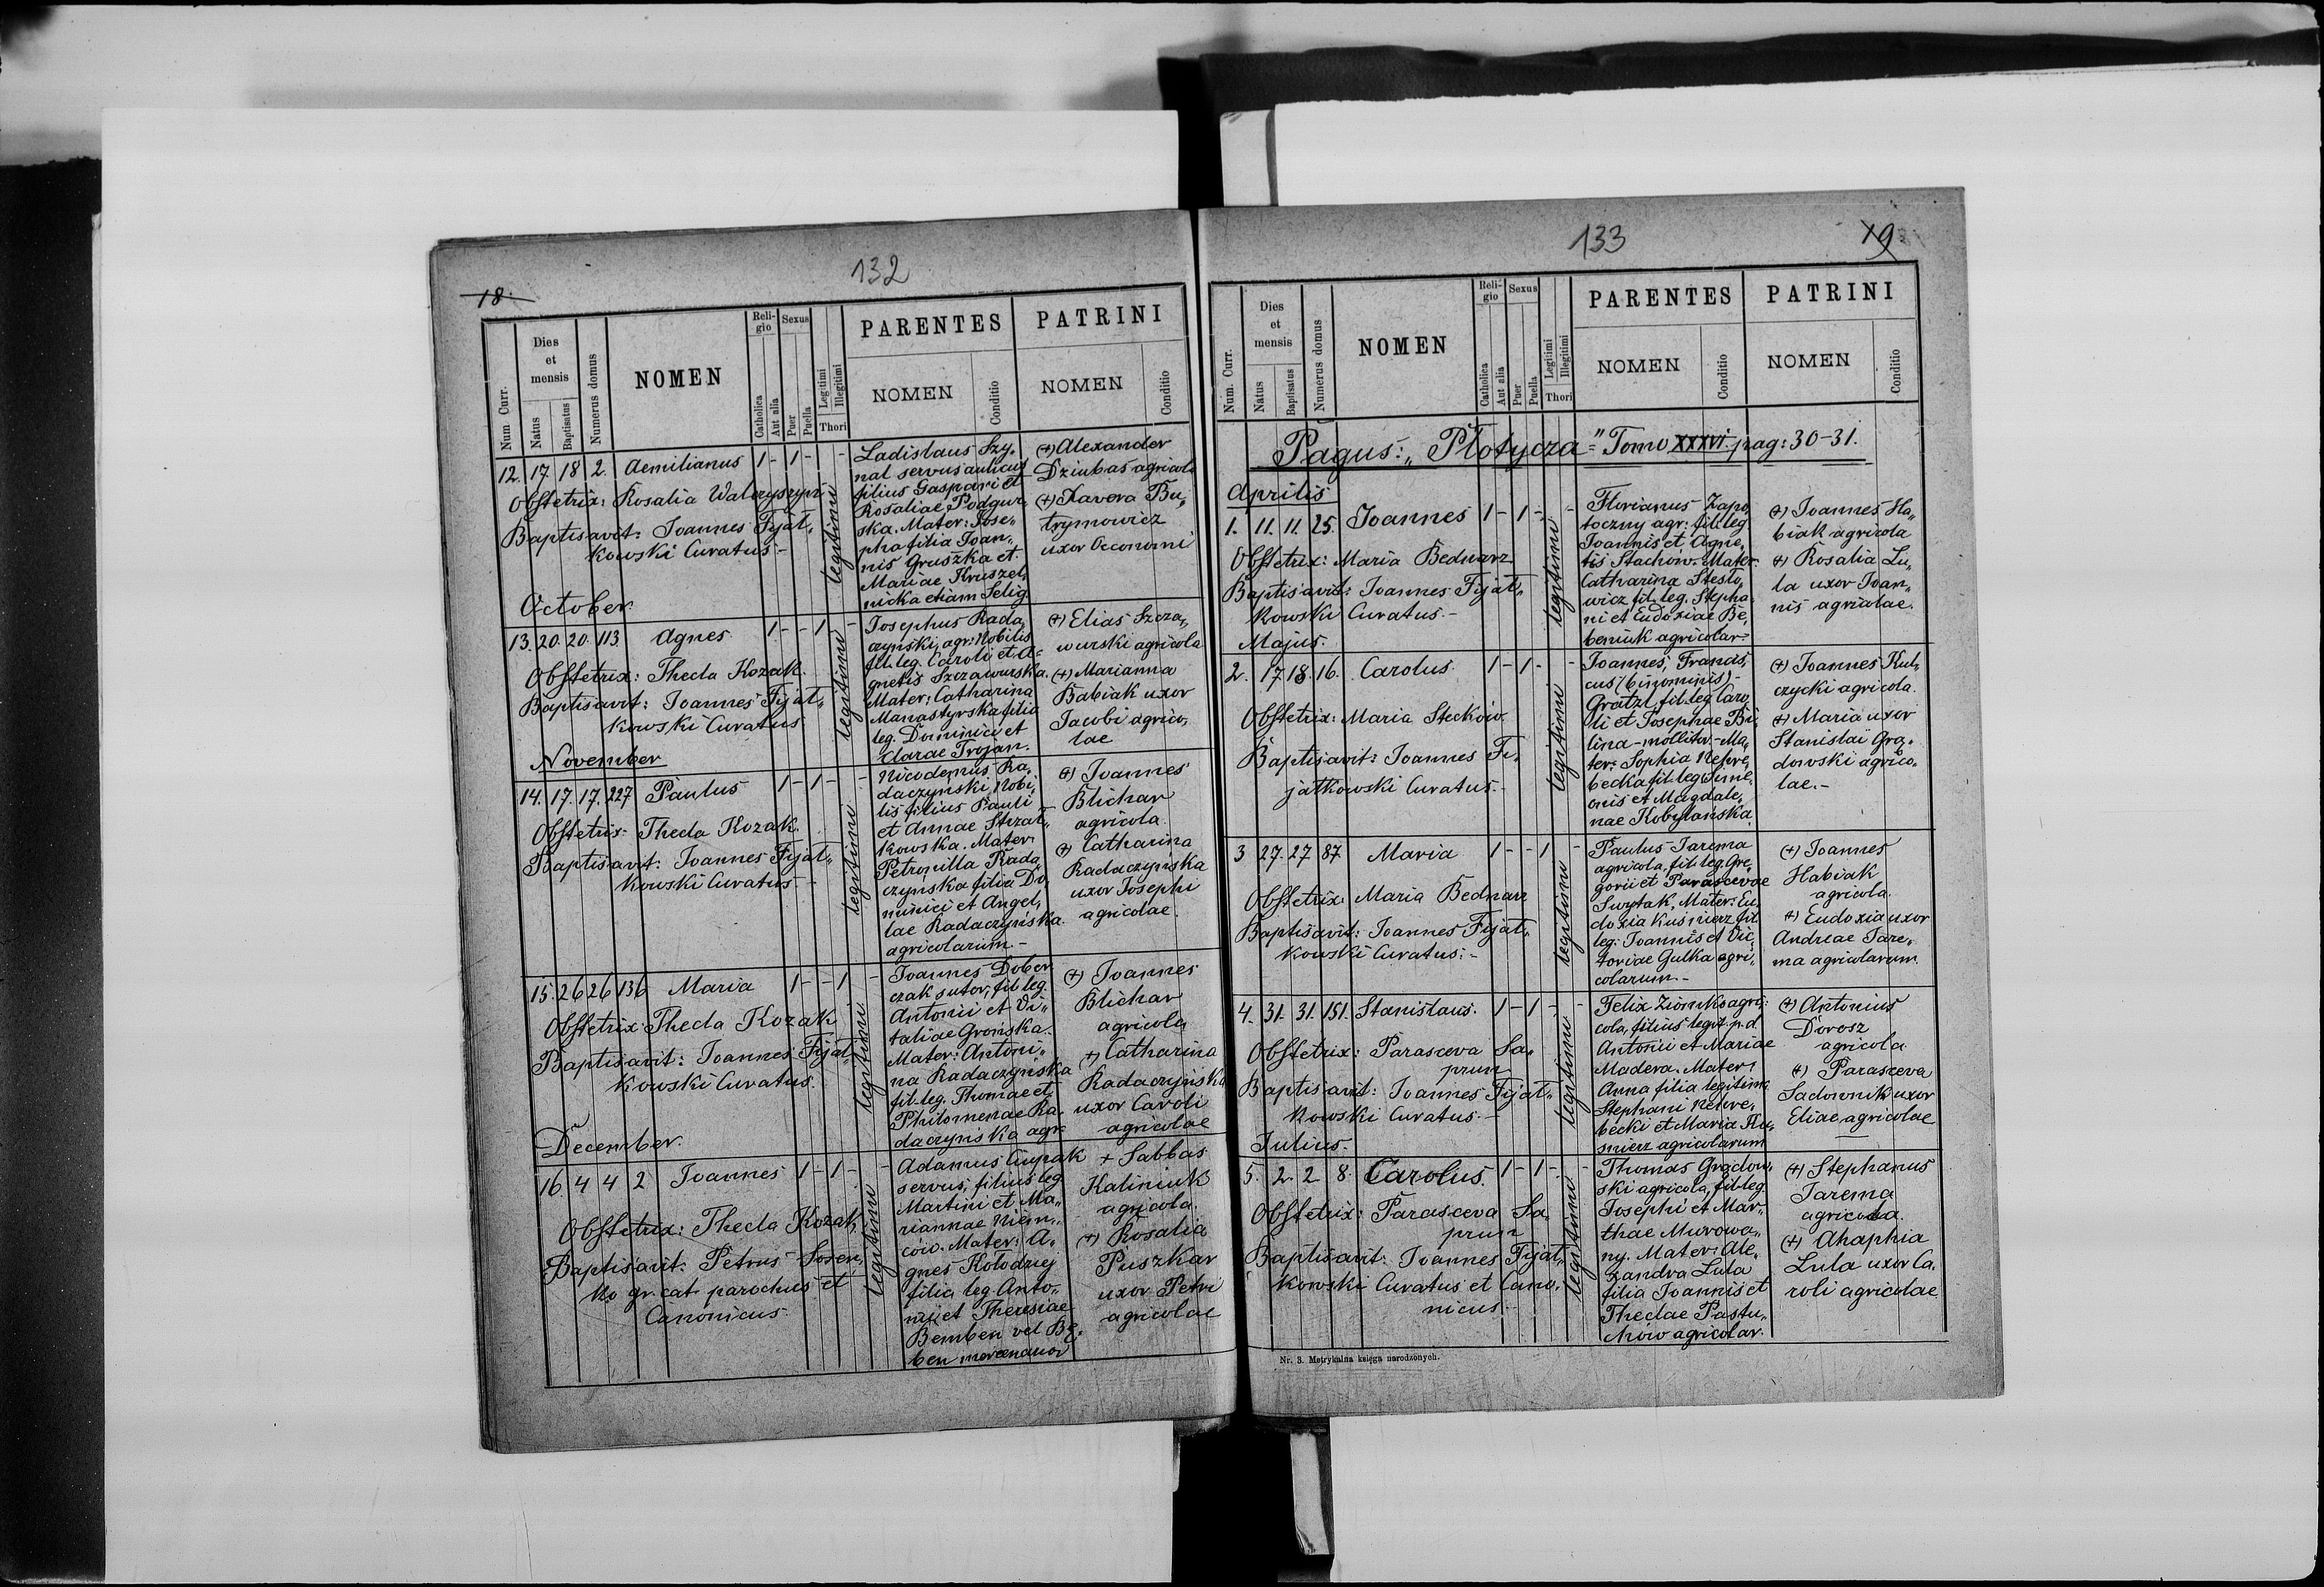 132
18.
Num Curr.
Dies et mensis
Natus
Baptisatus
Numerus domus
NOMEN
Religio
Catholica
Aut alia
Sexus
Puer
Puella
Legitimi
Illegitimi
Thori
PARENTES
NOMEN
Conditio
PATRINI
NOMEN
Conditio
12. 17. 18 2. Aemilianus 1 - 1 - -
Obstetrix: Rosalia Walczyszyn
Baptisavit: Joannes Fijał„
kowski Curatus -
legitimi
Ladislaus Szy„
nal servus aulicus
filius Gaspari et
Rosaliae Podgur„
ska. Mater: Jose„
pha filia Joan„
nis Gruszka et
Mariae Kruszel„
nicka etiam Selig.
(+) Alexander
Dziubas agricola
(+) Xavera Bu„
trymowicz
uxor Oeconomi
October.
13. 20. 20. 113. Agnes 1 - - 1 -
Obstetrix: Thecla Kozak.
Baptisavit: Joannes Fijał„
kowski Curatus
legitimi
Josephus Rada„
czyński, agr: Nobilis
fil. leg. Caroli et A=
gnetis Szczawurska.
Mater: Catharina
Manastyrska filia
leg. Dominici et
Clarae Trojan.
(+) Elias Szcza„
wurski agricola
(+) Marianna
Babiak uxor
Jacobi agrico„
lae
November
14. 17. 17. 227 Paulus 1 - 1 - -
Obstetrix: Thecla Kozak.
Baptisavit: Joannes Fijał„
kowski Curatus -
legitimi
Nicodemus Ra„
daczyński, Nobi„
lis filius Pauli
et Annae Strzał„
kowska. Mater:
Petronilla Rada„
czyńska filia Do„
minici et Angel„
lae Radaczyńska.
agricolarum. -
(+) Joannes
Blichar
agricola.
(+) Catharina
Radaczyńska
uxor Josephi
agricolae.
15. 26 26 136 Maria 1 - - 1 -
Obstetrix: Thecla Kozak
Baptisavit: Joannes Fijał„
kowski Curatus.
legitimi
Joannes Dober
czak sutor, fil. leg.
Antonii et Vi„
taliae Grońska.
Mater: Antoni„
na Radaczyńska
fil. leg. Thomae et
Philomenae Ra„
daczyńska agr:
(+) Joannes
Blichar
agricola
(+) Catharina
Radaczyńska
uxor Caroli
agricolae
December.
16 4 4 2 Joannes 1 - 1 - -
Obstetrix: Thecla Kozak
Baptisavit: Petrus Soren„
ko gr. cat. parochus et
Canonicus.
legitimi
Adamus Ciupak
servus, filius leg
Martini et Ma„
riannae Niem„
ców. Mater: A„
gnes Kołodziej
filia leg. Anto„
nii et Theresiae
Bemben vel Bę„
ben mercenarior
+ Sabbas
Kaliniuk
agricola.
(+) Rosalia
Puszkar
uxor Petri
agricolae
133
19
Num. Curr.
Dies et mensis
Natus
Baptisatus
Numerus domus
NOMEN
Religio
Catholica
Aut alia
Sexus
Puer
Puella
Legitimi
Illegitimi
Thori
PARENTES
NOMEN
Conditio
PATRINI
NOMEN
Conditio
Pagus: „Płotycza" = Tomo XXXVI. pag: 30-31.
Aprilis
1. 11. 11. 25. Joannes 1 - 1 - -
Obstetrix: Maria Bednarz
Baptisavit: Joannes Fijał„
kowski Curatus -
legitimi
Florianus Zapo„
toczny agr: fil. leg
Joannis et Agne„
tis Stachów. Mater:
Catharina Stesło„
wicz fil. leg. Stepha„
ni et Eudoxiae Be„
beniuk agricolar=
(+) Joannes Ha„
biak agricola
(+) Rosalia Lu„
la uxor Joan„
nis agricolae.
Majus.
2. 17. 18. 16. Carolus. 1 - 1 - -
Obstetrix: Maria Stecków.
Baptisavit: Joannes Fi„
jałkowski Curatus. -
legitimi
Joannes, Francis„
cus (binominis) -
Grätzl, fil. leg. Caro„
li et Josephae Bi„
lina - mollitor. - Ma„
ter: Sophia Niepre„
becka fil. leg. Sime„
onis et Magdale„
nae Kobylańska.
(+) Joannes Kul„
czycki agricola.
(+) Maria uxor
Stanislai Gra„
dowski agrico„
lae. -
3 27. 27 87 Maria 1 - - 1 -
Obstetrix: Maria Bednarz
Baptisavit: Joannes Fijał„
kowski Curatus: -
legitimi
Paulus Jarema
agricola, fil. leg. Gre„
gorii et Parascevae
Swytak, Mater: Eu„
doxia Kuśnierz fil
leg: Joannis et Vic„
toriae Gulka agri„
colarum. -
(+) Joannes
Habiak
agricola.
(+) Eudoxia uxor
Andreae Jare„
ma agricolarum.
4. 31. 31. 151. Stanislaus. 1 - 1 - -
Obstetrix: Parasceva Sa„
prun
Baptisavit: Joannes Fijał„
kowski Curatus. -
legitimi
Felix Ziomko agri:
cola, filius legit. p.d.
Antonii et Mariae
Madera. Mater:
Anna filia legitima
Stephani Niepre„
becki et Maria Ku„
śnierz agricolarum
(+) Antonius
Dorosz
agricola.
(+) Parasceva
Sadownik uxor
Eliae agricolae
Julius.
5. 2. 2 8. Carolus. 1 - 1 - -
Obstetrix: Parasceva Sa„
prun
Baptisavit: Joannes Fijał„
kowski Curatus et Cano„
nicus. -
legitimi
Thomas Gradow„
ski agricola, fil. leg
Josephi et Mar„
thae Murowa„
ny. Mater: Ale„
xandra Lula
filia Joannis et
Theclae Pastu„
chów agricolar.
(+) Stephanus
Jarema
agricola.
(+) Ahaphia
Lula uxor Ca„
roli agricolae
Nr. 3. Metrykalna księga narodzonych.